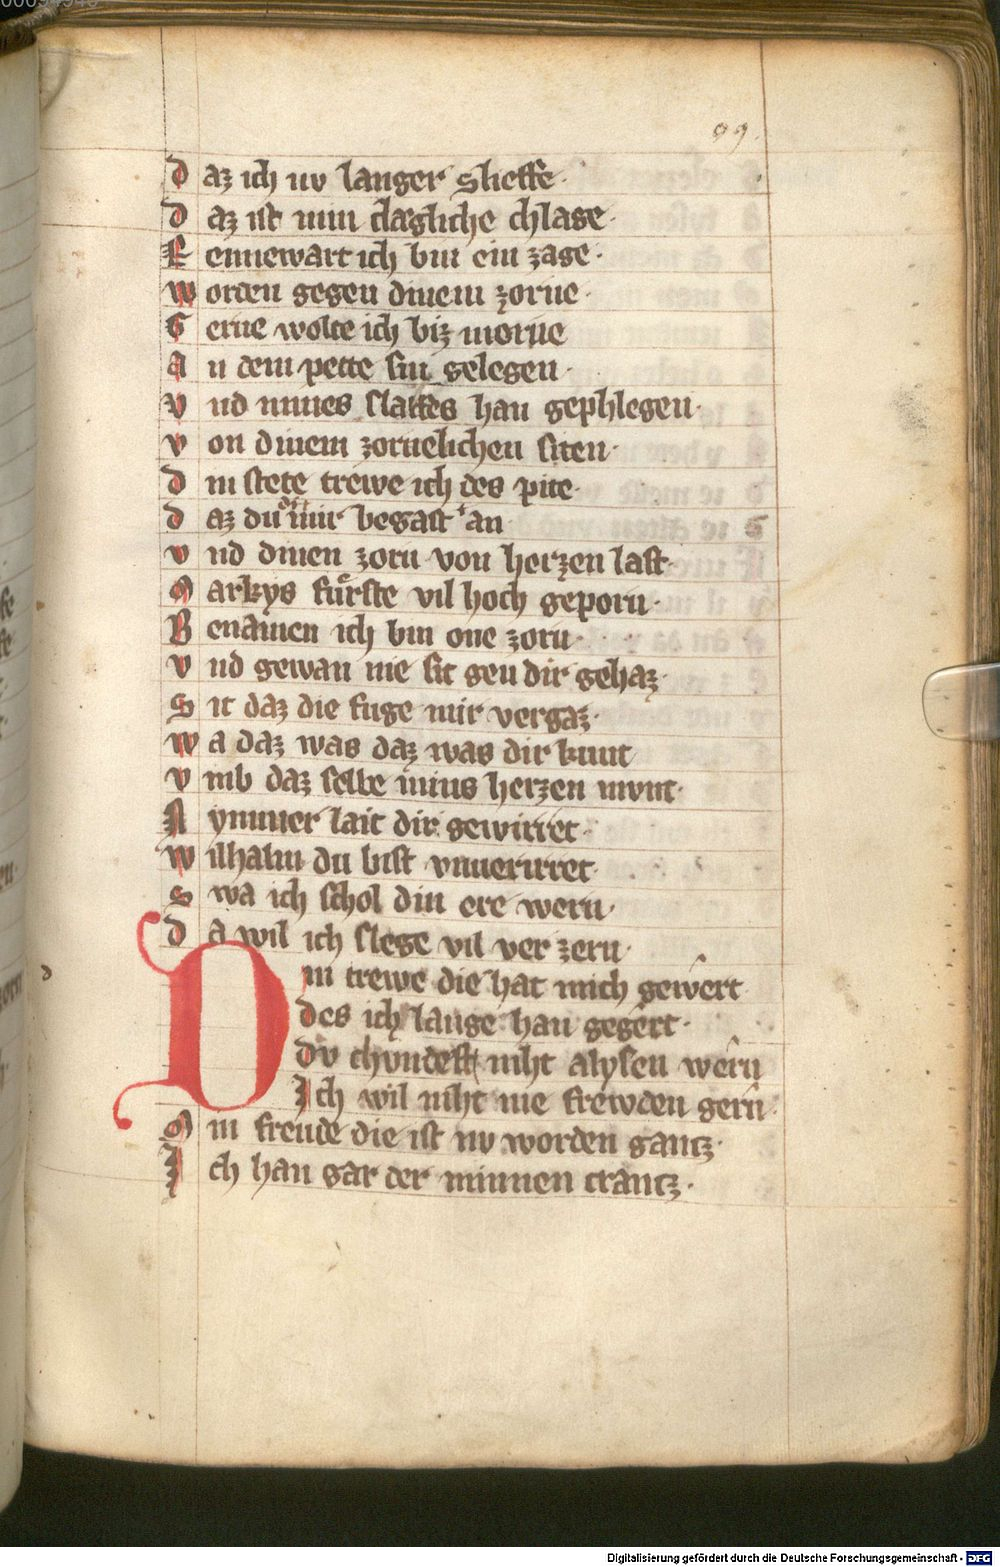 99.
daz ich nv langer sheffe·
daz ist min chlagliche chlage·
Kennewart ich bin ein zage·
worden gegen dinem zorne·
Gerne wolte ich biz morne
An dem pette sin gelegen·
vnd mines slaffes han gephlegen·
von dinem zornelichen siten·
din stete trewe ich des pite·
daz du mir begast an
vnd dinen zorn von herzen last·
Markys fuͤrste vil hoch geporn·
Benamen ich bin one zorn·
vnd gewan nie sit gen dir gehaz·
Sit daz die fuge mir vergaz·
wa daz was daz was dir kunt
vmb daz selbe mins herzen mvnt·
Nymmer lait dir gewirret·
wilhalm du bist vnuerirret·
Swa ich schol din ere wern·
da wil ich slege vil ver zern·
Din trewe die hat mich gewert
des ich lange han gegert·
Dv chvndest niht alysen wern
Ich wil niht me frewden gern·
Min freude die ist nv worden gantz·
Ich han gar der minnen crantz·
d
Digitalisierung gefördert durch die Deutsche Forschungsgemeinschaft - DFG